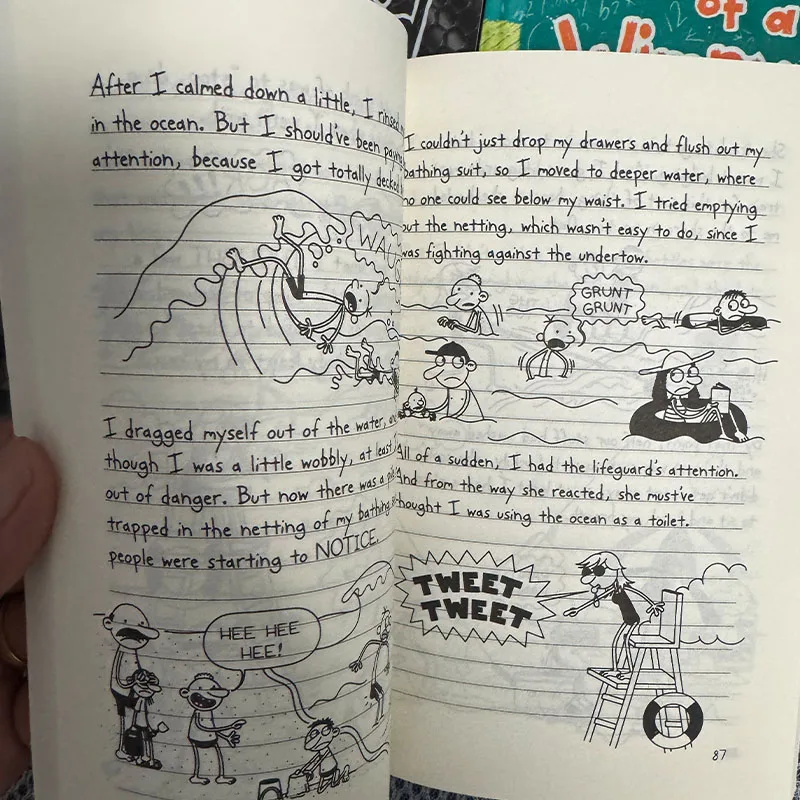 of a
After I calmed down a little, I rinsed
in the ocean. But I should've been
attention, because I got totally decked
I dragged myself out of the water,
though I was a little wobbly, at least
out of danger. But now there was a
trapped in the netting of my bathing
people were starting to NOTICE.
HEE HEE
HEE!
I couldn't just drop my drawers and flush out my
bathing suit, so I moved to deeper water, where
no one could see below my waist. I tried emptying
out the netting, which wasn't easy to do, since I
was fighting against the undertow.
GRUNT
GRUNT
All of a sudden, I had the lifeguard's attention.
And from the way she reacted, she must've
thought I was using the ocean as a toilet.
TWEET
TWEET
87